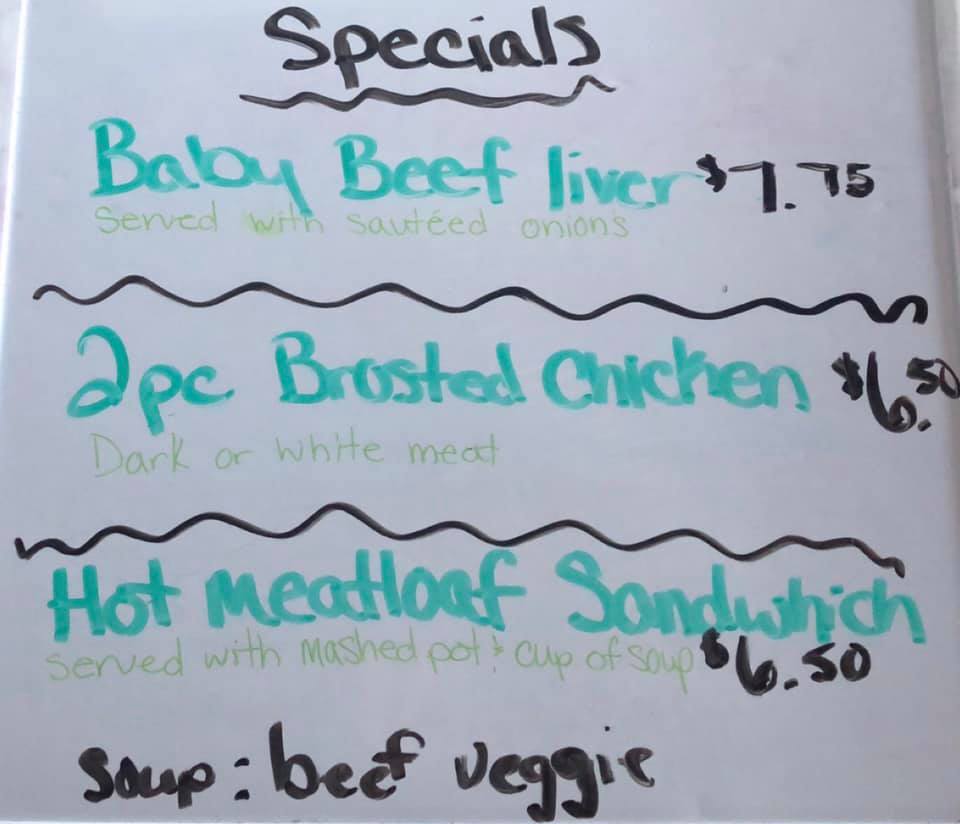 Specials
Baby Beef liver $7.75
Served with sautéed onions
2pc Brosted Chicken $6.50
Dark or white meat
Hot Meatloaf Sandwhich
Served with Mashed pot & cup of soup $6.50
Soup: beef veggie